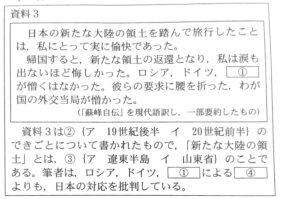 資料3
日本の新たな大陸の領土を踏んで旅行したこと
は，私にとって実に愉快であった。
帰国すると，新たな領土の返還となり，私は涙も
出ないほど悔しかった。ロシア，ドイツ，①
が憎くはなかった。彼らの要求に腰を折った，わが
国の外交当局が憎かった。
（『蘇峰自伝』を現代語訳し，一部要約したもの）
資料3は②{ア 19世紀後半 イ 20世紀前半}の
できごとについて書かれたもので，「新たな大陸の領
土」とは，③{ア 遼東半島 イ 山東省}のことであ
る。筆者は，ロシア，ドイツ，①による④
よりも，日本の対応を批判している。